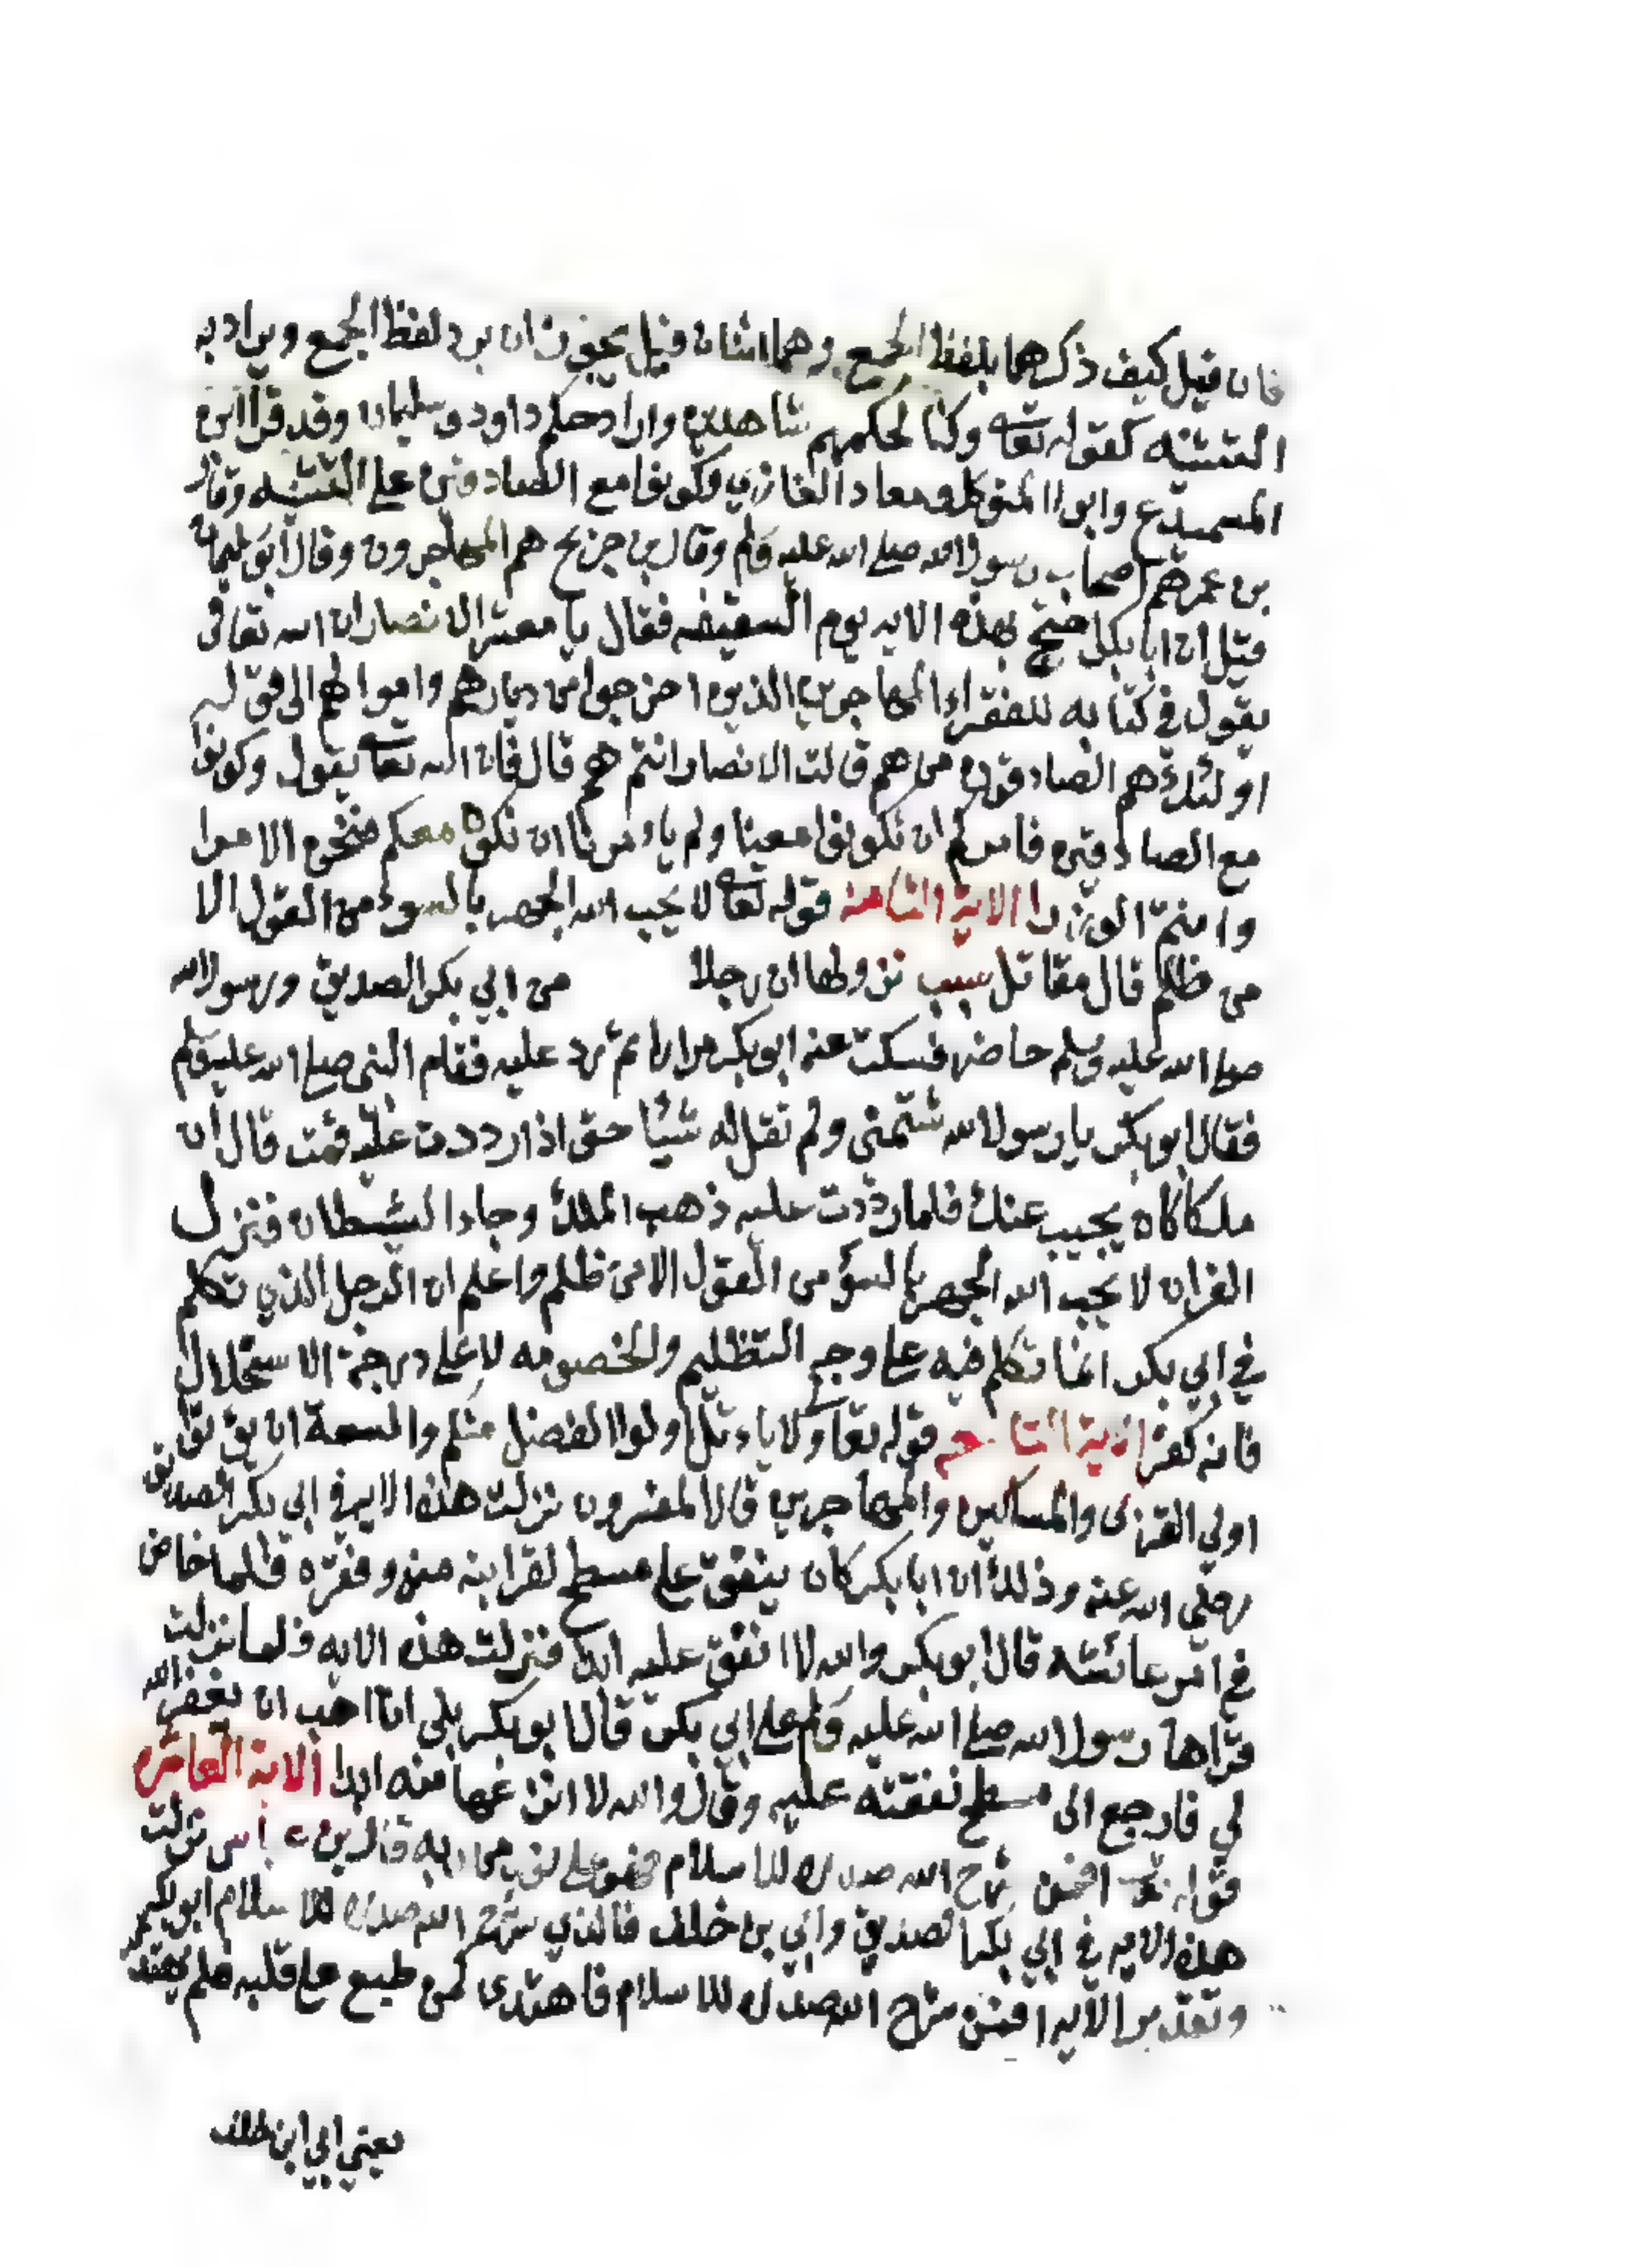 فان قيل كيف ذكرهما بلفظ الجمع وهما اثنان قيل يجوز ان يرد لفظ الجمع ويراد به
التثنيه كقوله تعا وكنا لحكمهم شاهدين واراد حكم داود وسليمان وقد قرا ابن
السميدع وابو المتوكل ومعاد القارئ وكونوا مع الصادقين على التثنيه وقال
بن عمر هم اصحاب رسول الله صلى الله عليه وسلم وقال بن جريج هم المهاجرون وقال ابو سليمان
قيل ان ابا بكر احتج بهذه الايه يوم السقيفه فقال يا معشر الانصار ان الله تعالى
يقول في كتابه للفقراء المهاجرين الذين اخرجوا من ديارهم واموالهم الى قوله
اولئك هم الصادقون من هم قالت الانصار انتم هم قال فان الله تعا يقول وكونوا
مع الصادقين فامركم ان تكونوا معنا ولم يامرنا ان نكون معكم فنحن الامرا
وانتم الوزرا الاية الثامنة قوله تعا لا يحب الله الجهر بالسوء من القول الا
من ظلم قال مقاتل سبب نزولها ان رجلا من ابي بكر الصديق ورسول الله
صلى الله عليه وسلم حاضر فسكت عنه ابو بكر مرارا ثم رد عليه فقام النبي صلى الله عليه وسلم
فقال ابو بكر يا رسول الله شتمني ولم تقل له شيئا حتى اذا رددت عليه قمت قال ان
ملكا كان يجيب عنك فلما رددت عليه ذهب الملك وجاء الشيطان فنزل
القران لا يحب الله الجهر بالسؤ من القول الا من ظلم واعلم ان الرجل الذي تكلم
في ابي بكر انما تكلم فيه على وجه التظليم والخصومه لا على درجة الاستحلال
فانه كفر الاية التاسعه قوله تعا ولا ياءتل اولوا الفضل منكم والسعة ان يؤتوا
اولي القربى والمساكين والمهاجرين قال المفسرون نزلت هذه الايه في ابي بكر الصديق
رضي الله عنه وذلك ان ابا بكر كان ينفق على مسطح لقرابته منه وفقره فلما خاض
في امر عائشه قال ابو بكر والله لا انفق عليه ابدا فنزلت هذه الايه فلما نزلت
قراها رسول الله صلى الله عليه وسلم على ابي بكر قال ابو بكر بلى انا احب ان يغفر الله
لي فارجع الى مسطح نفقته عليه وقال والله لا انزعها منه ابدا الاية العاشره
قوله تعا افمن شرح الله صدره للاسلام فهو على نور من ربه قال بن عباس نزلت
هذه الايه في ابي بكر الصديق وابي بن خلف فالذي شرح الله صدره للاسلام ابو بكر
وتقدير الايه افمن شرح الله صدره للاسلام فاهتدى كمن طبع على قلبه فلم يهتد
يعني ابي ابن خلف